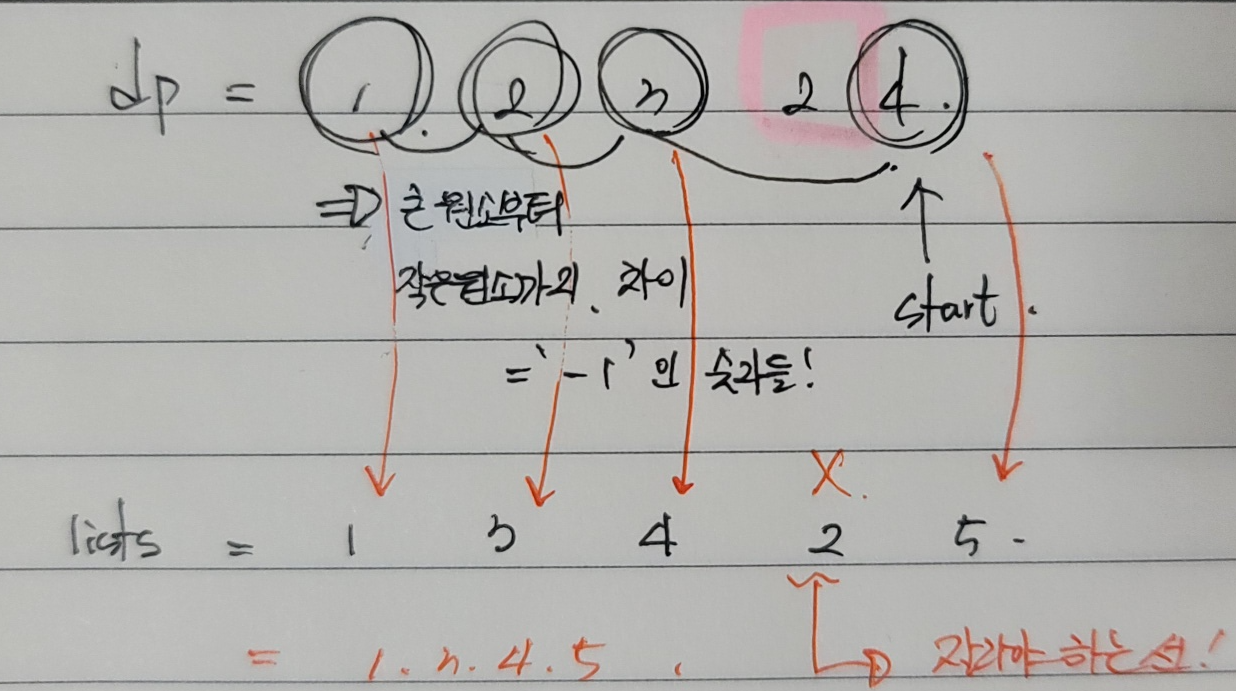 dp = 1 2 3 2 4.
⇒ 큰 원소부터
작은원소가의. 차이
start.
= '-1' 인 숫자들!
X.
lists = 1 3 4 2 5.
= 1. 3. 4. 5. 잘라야 하는 선!